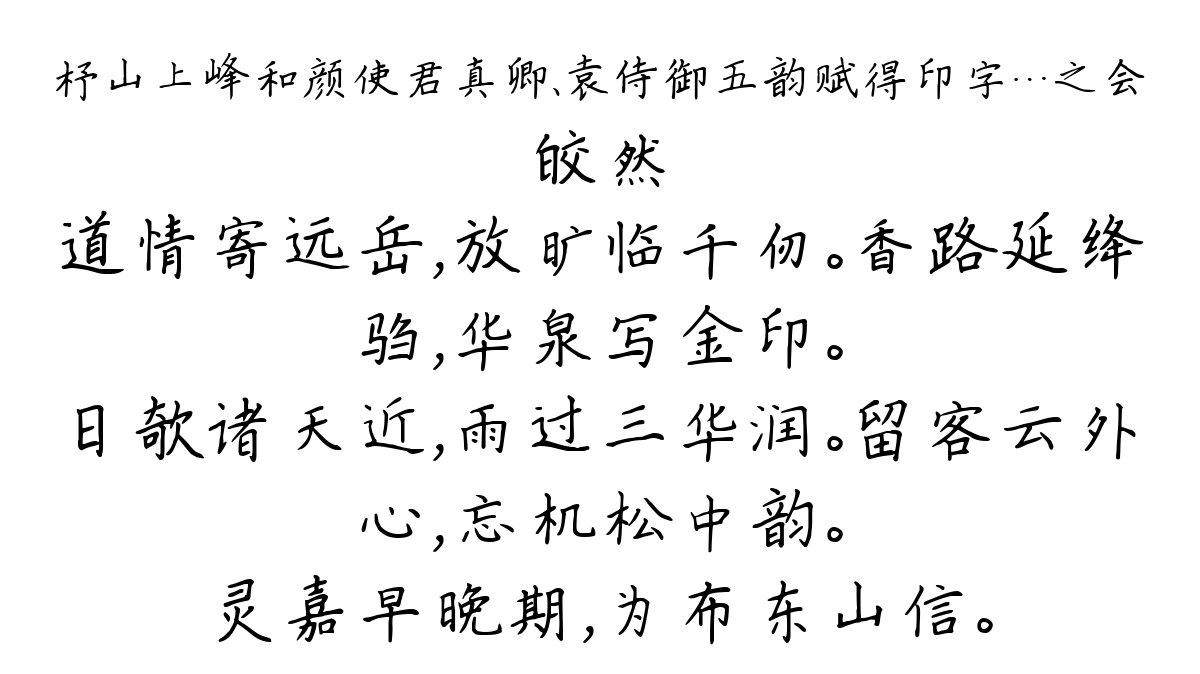 杼山上峰和颜使君真卿、袁侍御五韵赋得印字…之会
皎然
道情寄远岳,放旷临千仞。香路延绛
驺,华泉写金印。
日欹诸天近,雨过三华润。留客云外
心,忘机松中韵。
灵嘉早晚期,为布东山信。